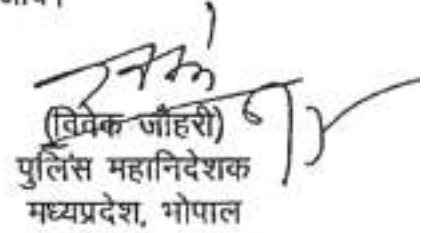 (विवेक जौहरी)
पुलिस महानिदेशक
मध्यप्रदेश, भोपाल